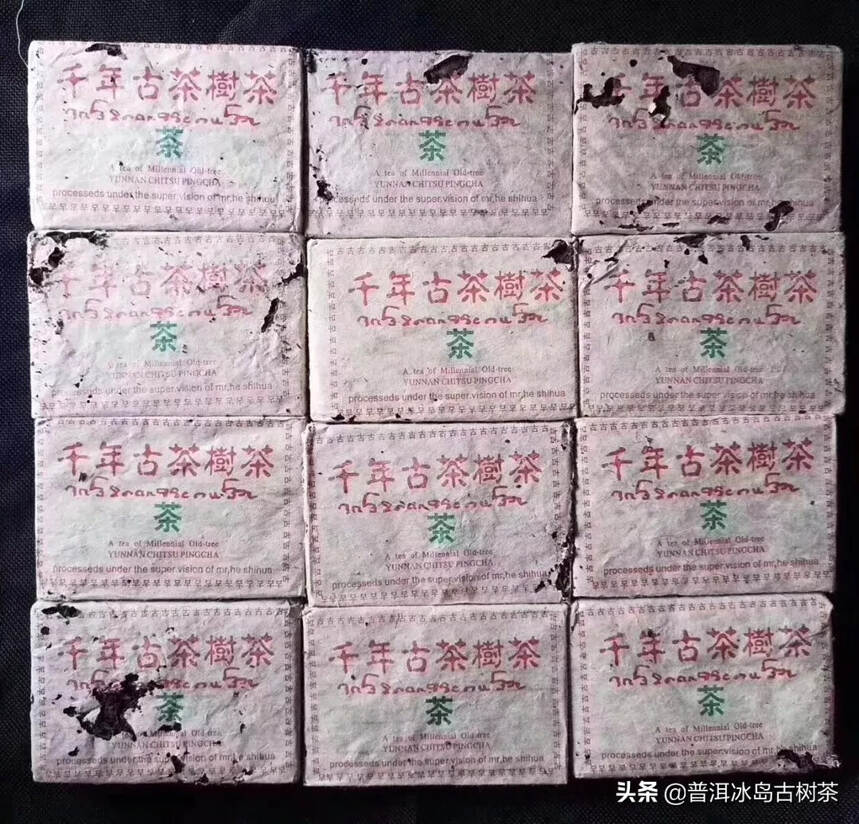 千年古茶樹茶
茶
A tea of Millennial Old-tree
YUNNAN CHITSU PINGCHA
processeds under the super.vision of mr,he shihua
千年古茶樹茶
茶
A tea of Millennial Old-tree
YUNNAN CHITSU PINGCHA
under the super.vision of mr,he shihua
千年古茶樹茶
茶
A tea of Millennial Old-tree
YUNNAN CHITSU PINGCHA
processeds under the super.vision of mr,he shihua
千年古茶樹茶
茶
A tea of Millennial Old-tree
YUNNAN CHITSU PINGCHA
processeds under the super.vision of mr,he shihua
千年古茶樹茶
茶
A tea of Millennial Old-tree
YUNNAN CHITSU PINGCHA
processeds under the super.vision of mr,he shihua
千年古茶樹茶
茶
A tea of Millennial Old-tree
YUNNAN CHITSU PINGCHA
processeds under the super.vision of mr,he shihua
千年古茶樹茶
茶
A tea of Millennial Old-tree
YUNNAN CHITSU PINGCHA
processeds under the super.vision of mr,he shihua
千年古茶樹茶
茶
A tea of Millennial Old-tree
YUNNAN CHITSU PINGCHA
processeds under the super.vision of mr,he shihua
千年古茶樹茶
茶
A tea of Millennial Old-tree
YUNNAN CHITSU PINGCHA
processeds under the super.vision of mr,he shihua
千年古茶樹茶
茶
of Millennial Old-tree
YUNNAN CHITSU PINGCHA
processeds under the super.vision of mr,he shihua
千年古茶樹茶
茶
A tea of Millennial Old-tree
YUNNAN CHITSU PINGCHA
processeds under the super.vision of mr,he shihua
千年古茶樹茶
茶
A tea of Millennial Old-tree
YUNNAN CHITSU PINGCHA
processeds under the super.vision of mr,he shihua
头条 @普洱冰岛古树茶